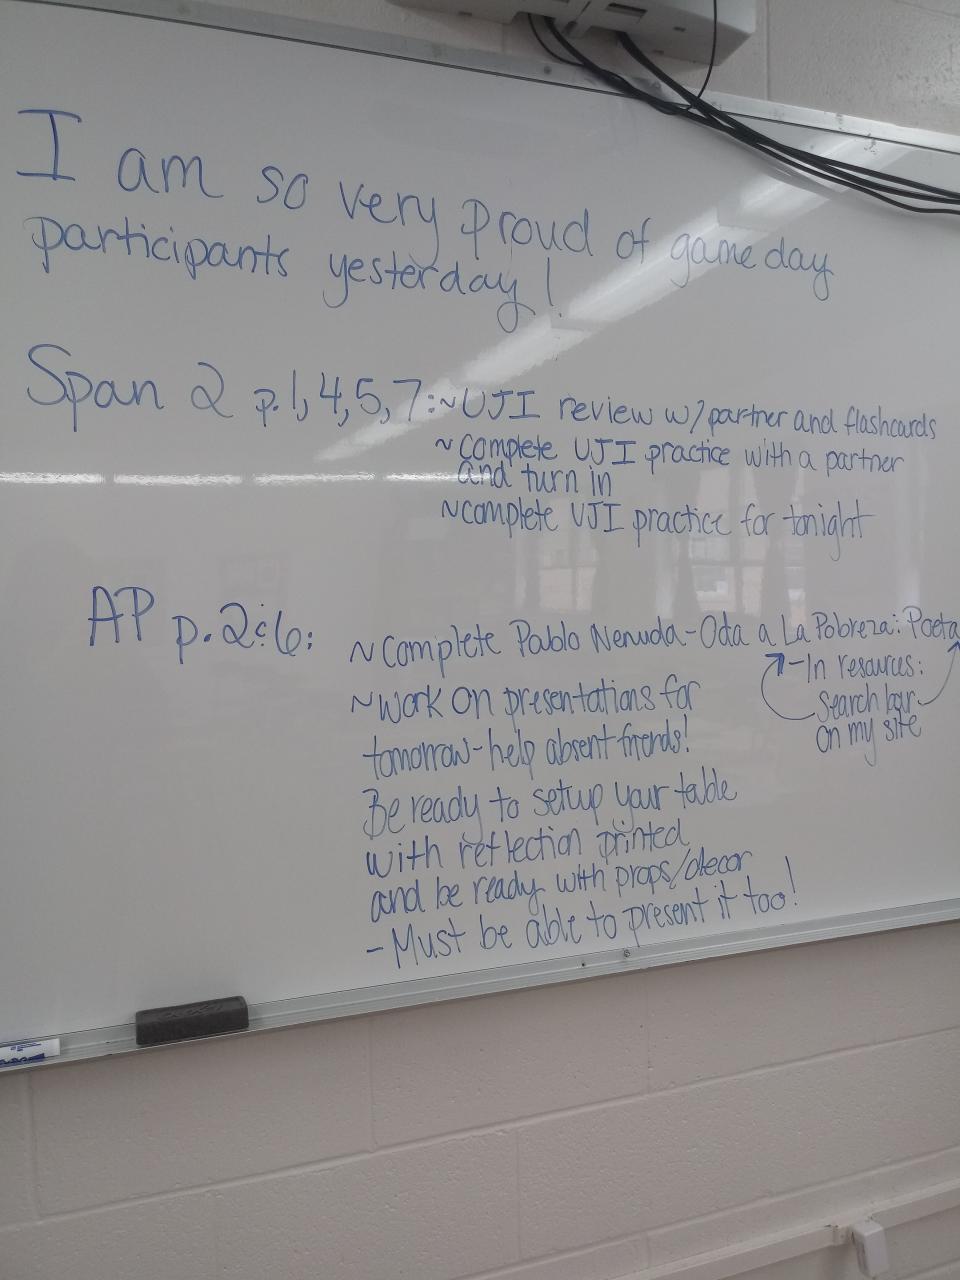 I am so very proud of game day
participants yesterday!
Span 2 p.1,4,5,7:~UJI review w/partner and flashcards
~complete UJI practice with a partner
and turn in
~complete UJI practice for tonight
AP p.2:6:
~complete Pablo Neruda-Oda a La Pobreza: Poeta
-In resources:
Search bar
on my site
~Work on presentations for
tomorrow-help absent friends!
Be ready to setup your table
with reflection printed
and be ready with props/decor
-Must be able to present it too!